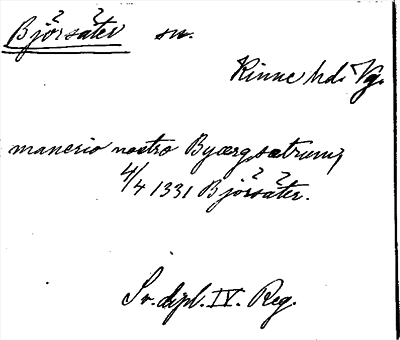 Björsäter sn.
Kinne hd. Vg.
manerio nostro Byærgsætrum,
4/4 1331 Björsäter.
Sv. dipl. IV. Reg.